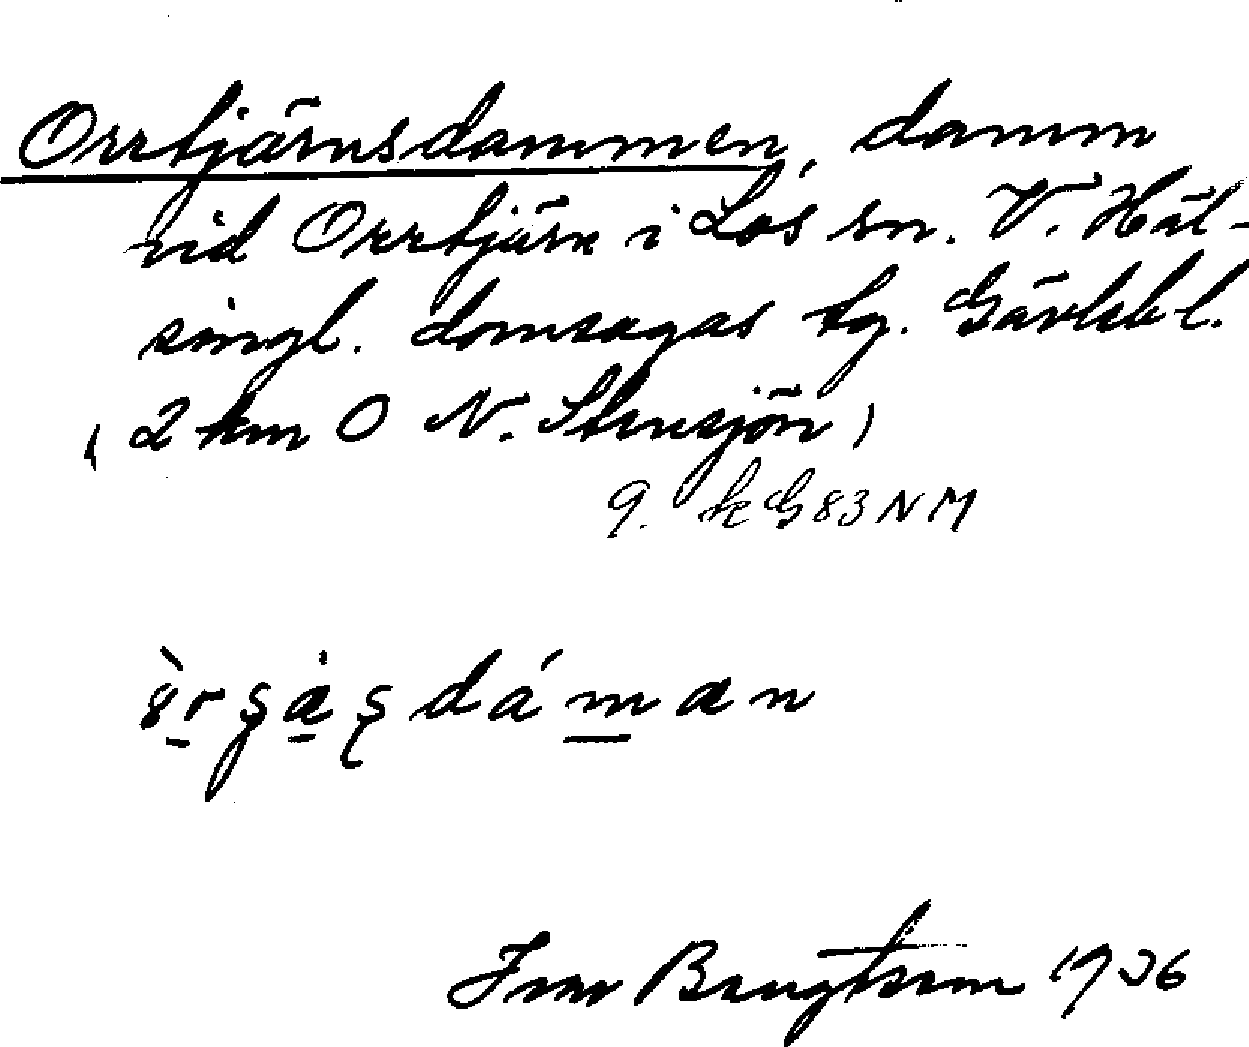 Orrtjärnsdammen, damm
vid Orrtjärn i Los sn. V. Häl-
singl. domsagas tg. Gävlebl.
(2 km O N. Stensjön)
9. kG83NM
Ivar Bengtsson 1936